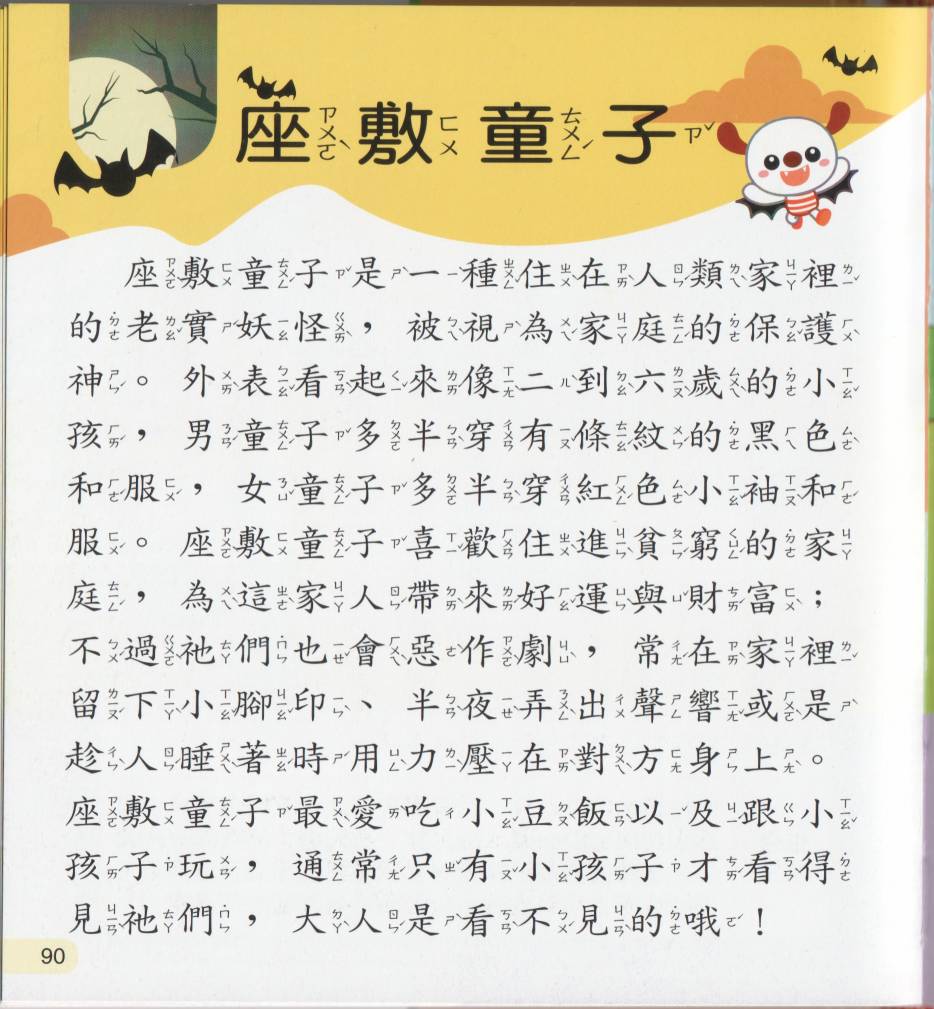 座敷童子
座敷童子是一種住在人類家裡
的老實妖怪，被視為家庭的保護
神。外表看起來像二到六歲的小
孩，男童子多半穿有條紋的黑色
和服，女童子多半穿紅色小袖和
服。座敷童子喜歡住進貧窮的家
庭，為這家人帶來好運與財富；
不過祂們也會惡作劇，常在家裡
留下小腳印、半夜弄出聲響或是
趁人睡著時用力壓在對方身上。
座敷童子最愛吃小豆飯以及跟小
孩子玩，通常只有小孩子才看得
見祂們，大人是看不見的哦！
90